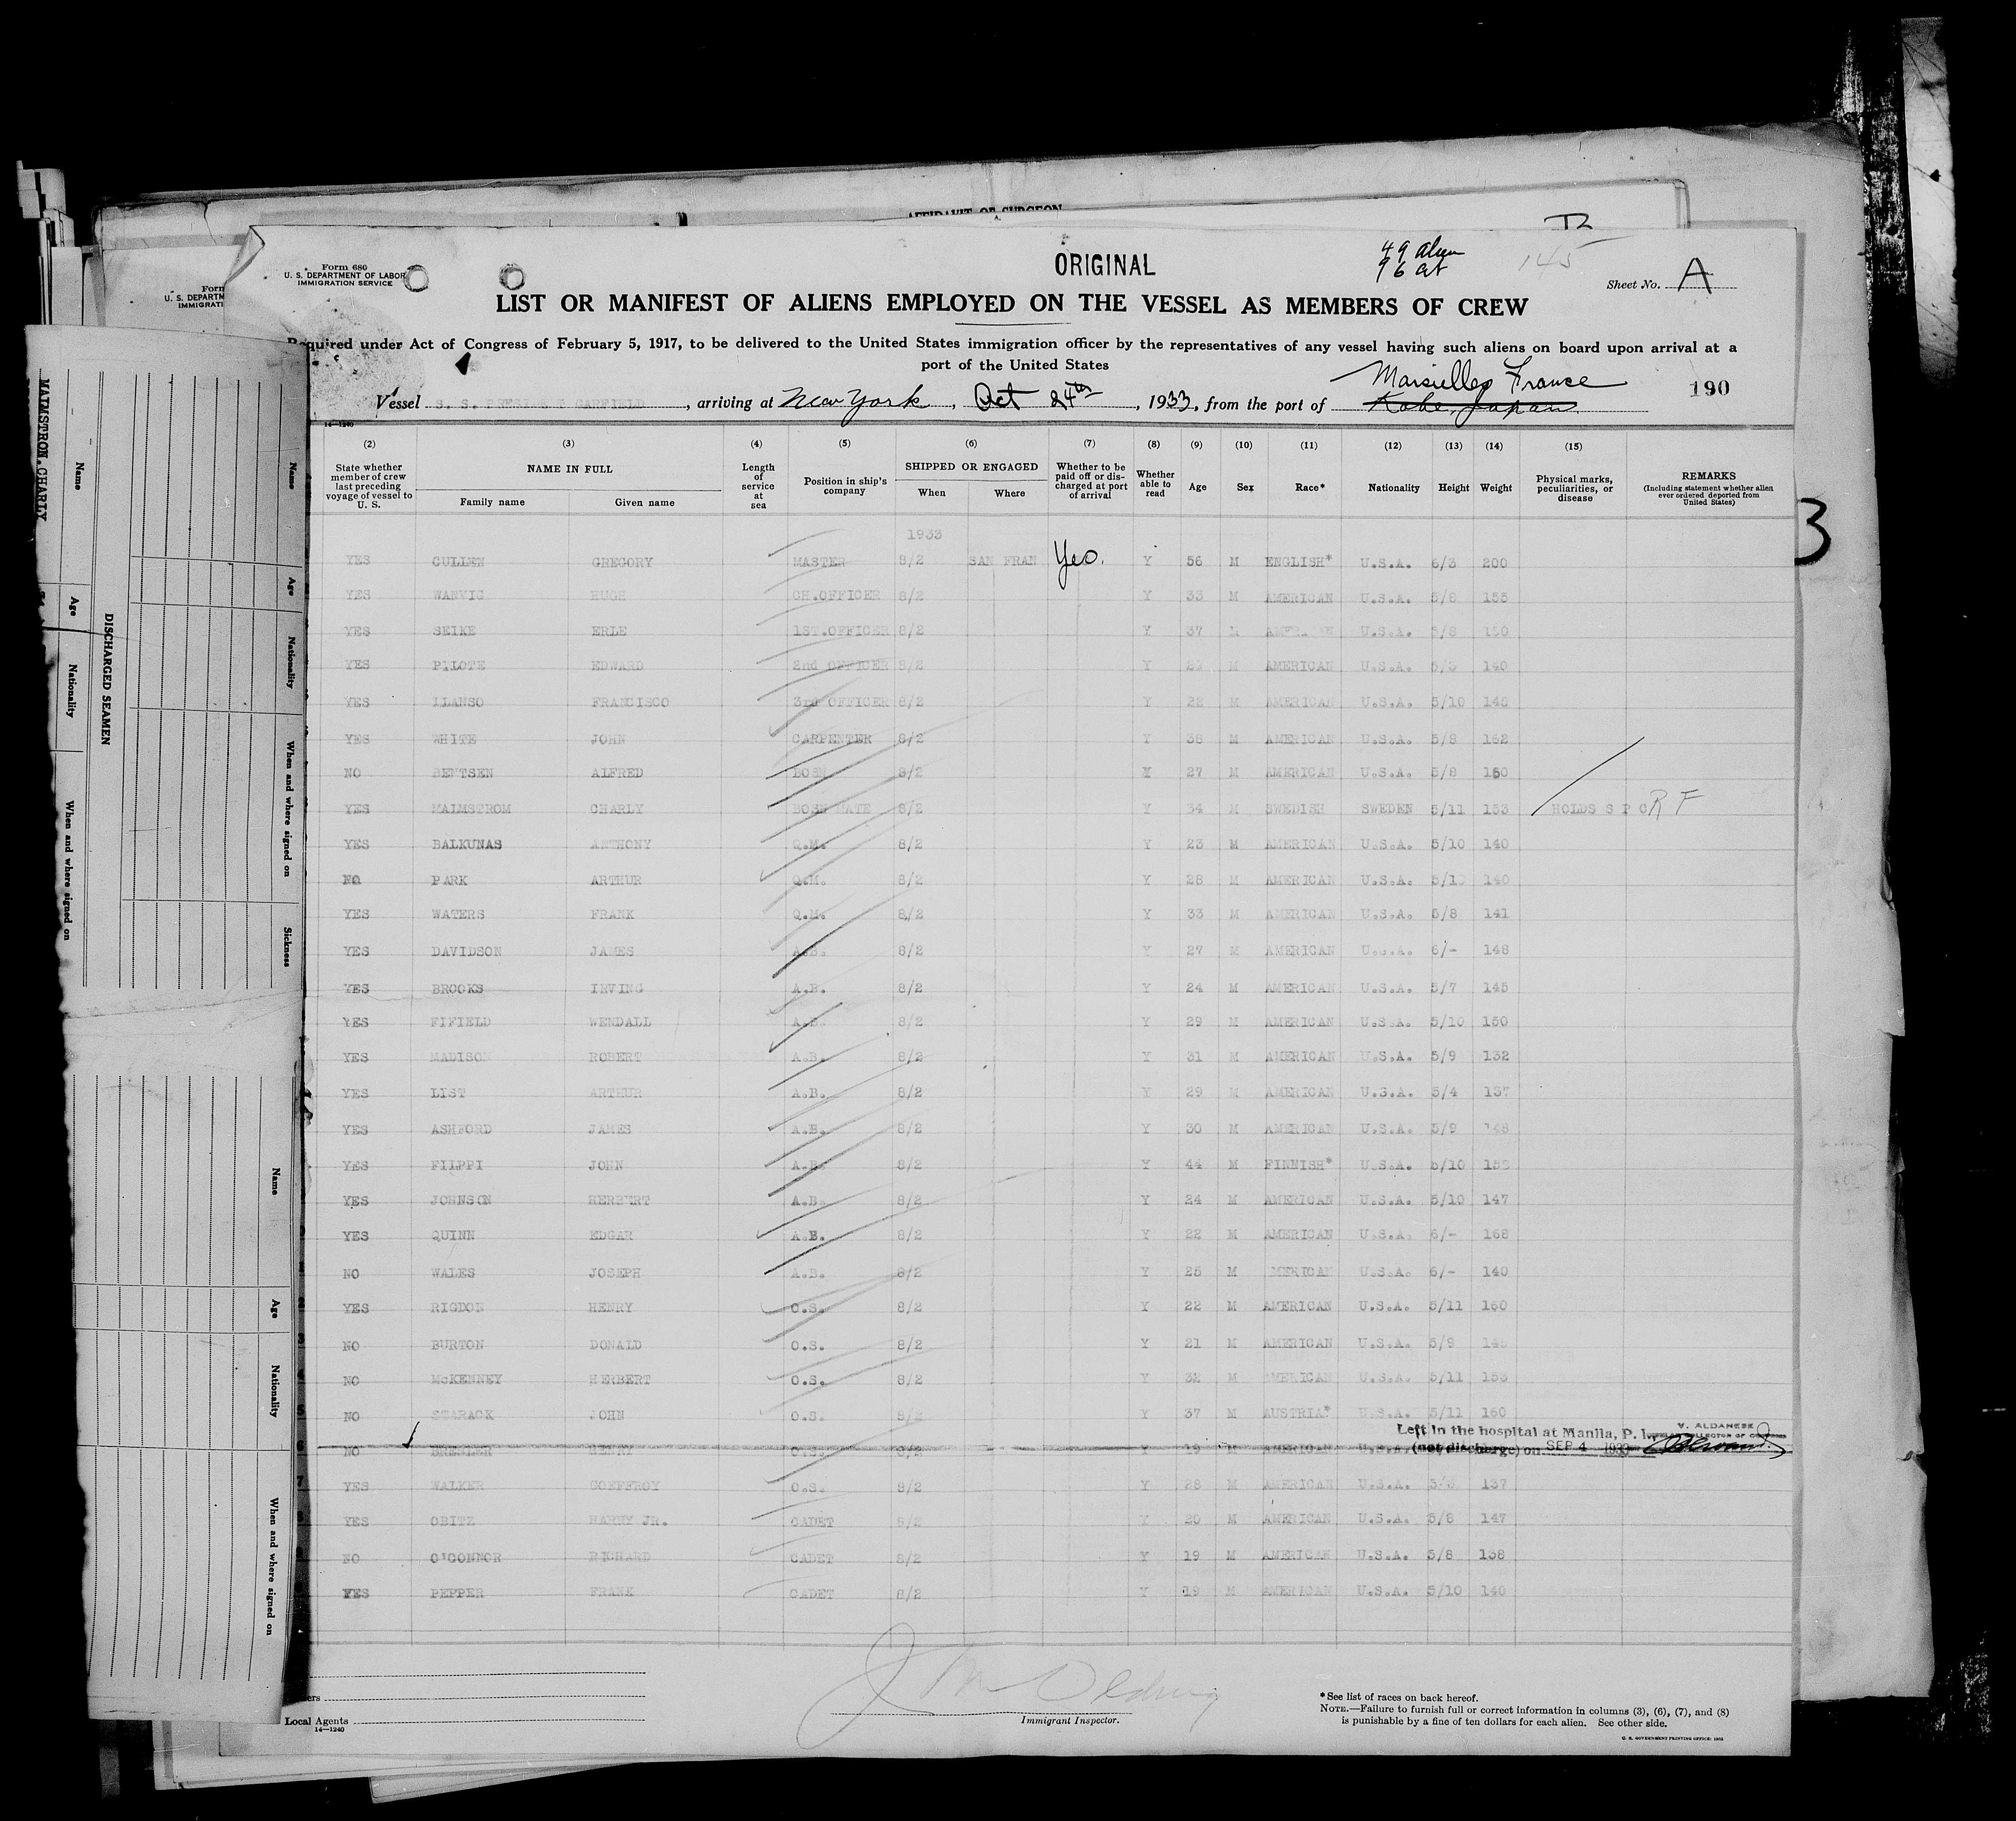 AFFIDAVIT OF SURGEON
ORIGINAL
49 Alien
96 Cit
145
Form 680
U. S. DEPARTMENT OF LABOR
IMMIGRATION SERVICE
Sheet No. A
LIST OR MANIFEST OF ALIENS EMPLOYED ON THE VESSEL AS MEMBERS OF CREW
Required under Act of Congress of February 5, 1917, to be delivered to the United States immigration officer by the representatives of any vessel having such aliens on board upon arrival at a
port of the United States
Marsielles France
190
Vessel S. S. PRESIDENT GARFIELD, arriving at New York, Oct 24th, 1933, from the port of Kobe, Japan
14—1240
(2) (3) (4) (5) (6) (7) (8) (9) (10) (11) (12) (13) (14) (15)
State whether member of crew last preceding voyage of vessel to U. S.
NAME IN FULL
Family name Given name
Length of service at sea
Position in ship's company
SHIPPED OR ENGAGED
When Where
Whether to be paid off or discharged at port of arrival
Whether able to read
Age Sex Race* Nationality Height Weight
Physical marks, peculiarities, or disease
REMARKS
(Including statement whether alien ever ordered deported from United States)
1933
YES CULLEN GREGORY MASTER 8/2 SAN FRAN Yes. Y 56 M ENGLISH* U.S.A. 6/3 200
YES WARVIG HUGH CH.OFFICER 8/2 Y 33 M AMERICAN U.S.A. 5/8 155
YES SEIKE ERLE 1ST.OFFICER 8/2 Y 37 M AMERICAN U.S.A. 5/8
YES PILOTE EDWARD 2nd OFFICER 8/2 Y M AMERICAN U.S.A. 140
YES LLANSO FRANCISCO 3rd OFFICER 8/2 Y 22 M AMERICAN U.S.A. 5/10 148
YES WHITE JOHN CARPENTER 8/2 Y 38 M AMERICAN U.S.A. 5/8 162
NO BENTSEN ALFRED BOSN 8/2 Y 27 M AMERICAN U.S.A. 5/8 150
YES MALMSTROM CHARLY BOSN MATE 8/2 Y 34 M SWEDISH SWEDEN 5/11 153 HOLDS S P C R F
YES BALKUNAS ANTHONY Q.M. 8/2 Y 23 M AMERICAN U.S.A. 5/10 140
NO PARK ARTHUR Q.M. 8/2 Y 28 M AMERICAN U.S.A. 140
YES WATERS FRANK Q.M. 8/2 Y 33 M AMERICAN U.S.A. 5/8 141
YES DAVIDSON JAMES A.B. 8/2 Y 27 M AMERICAN U.S.A. 6/- 148
YES BROOKS IRVING A.B. 8/2 Y 24 M AMERICAN U.S.A. 5/7 145
YES FIFIELD WENDALL A.B. 8/2 Y 29 M AMERICAN U.S.A. 5/10 150
YES MADISON ROBERT A.B. 8/2 Y 31 M AMERICAN U.S.A. 5/9 132
YES LIST ARTHUR A.B. 8/2 Y 29 M AMERICAN U.S.A. 5/4 137
YES ASHFORD JAMES A.B. 8/2 Y 30 M AMERICAN U.S.A. 5/9 148
YES FILPPI JOHN A.B. 8/2 Y 44 M FINNISH* U.S.A. 5/10
YES JOHNSON HERBERT A.B. 8/2 Y 24 M AMERICAN U.S.A. 5/10 147
YES QUINN EDGAR A.B. 8/2 Y 22 M AMERICAN U.S.A. 6/- 168
NO WALES JOSEPH A.B. 8/2 Y 25 M AMERICAN U.S.A. 6/- 140
YES RIGDON HENRY O.S. 8/2 Y 22 M AMERICAN U.S.A. 5/11 160
NO BURTON DONALD O.S. 8/2 Y 21 M AMERICAN U.S.A. 5/9
NO McKENNEY HERBERT O.S. 8/2 Y 32 M AMERICAN U.S.A. 5/11 153
NO STARACK JOHN O.S. 8/2 Y 37 M AUSTRIA* U.S.A. 5/11 150
Left in the hospital at Manila, P. I. V. ALDANESE
NO O.S. 8/2 Y 19 M AMERICAN U.S.A. (not discharge) on SEP 4 1933
YES WALKER GOEFFROY O.S. 8/2 Y 28 M AMERICAN U.S.A. 137
YES OBITZ HARRY JR. CADET 8/2 Y 20 M AMERICAN U.S.A. 5/8 147
NO O'CONNOR RICHARD CADET 8/2 Y 19 M AMERICAN U.S.A. 5/8 138
YES PEPPER FRANK CADET 8/2 Y 19 M AMERICAN U.S.A. 5/10 140
Local Agents
14—1240
Immigrant Inspector.
*See list of races on back hereof.
NOTE.—Failure to furnish full or correct information in columns (3), (6), (7), and (8)
is punishable by a fine of ten dollars for each alien. See other side.
U. S. GOVERNMENT PRINTING OFFICE: 1932
3
MALMSTRON.CHARLY
DISCHARGED SEAMEN
Name Age Nationality When and where signed on
Name Age Nationality When and where signed on Sickness
Name Age Nationality When and where signed on